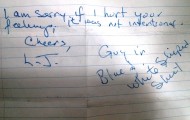 I am sorry, if I hurt your
feelings, it was not intentional.
Cheers,
L.J.
Guy in
Blue & white striped
shirt